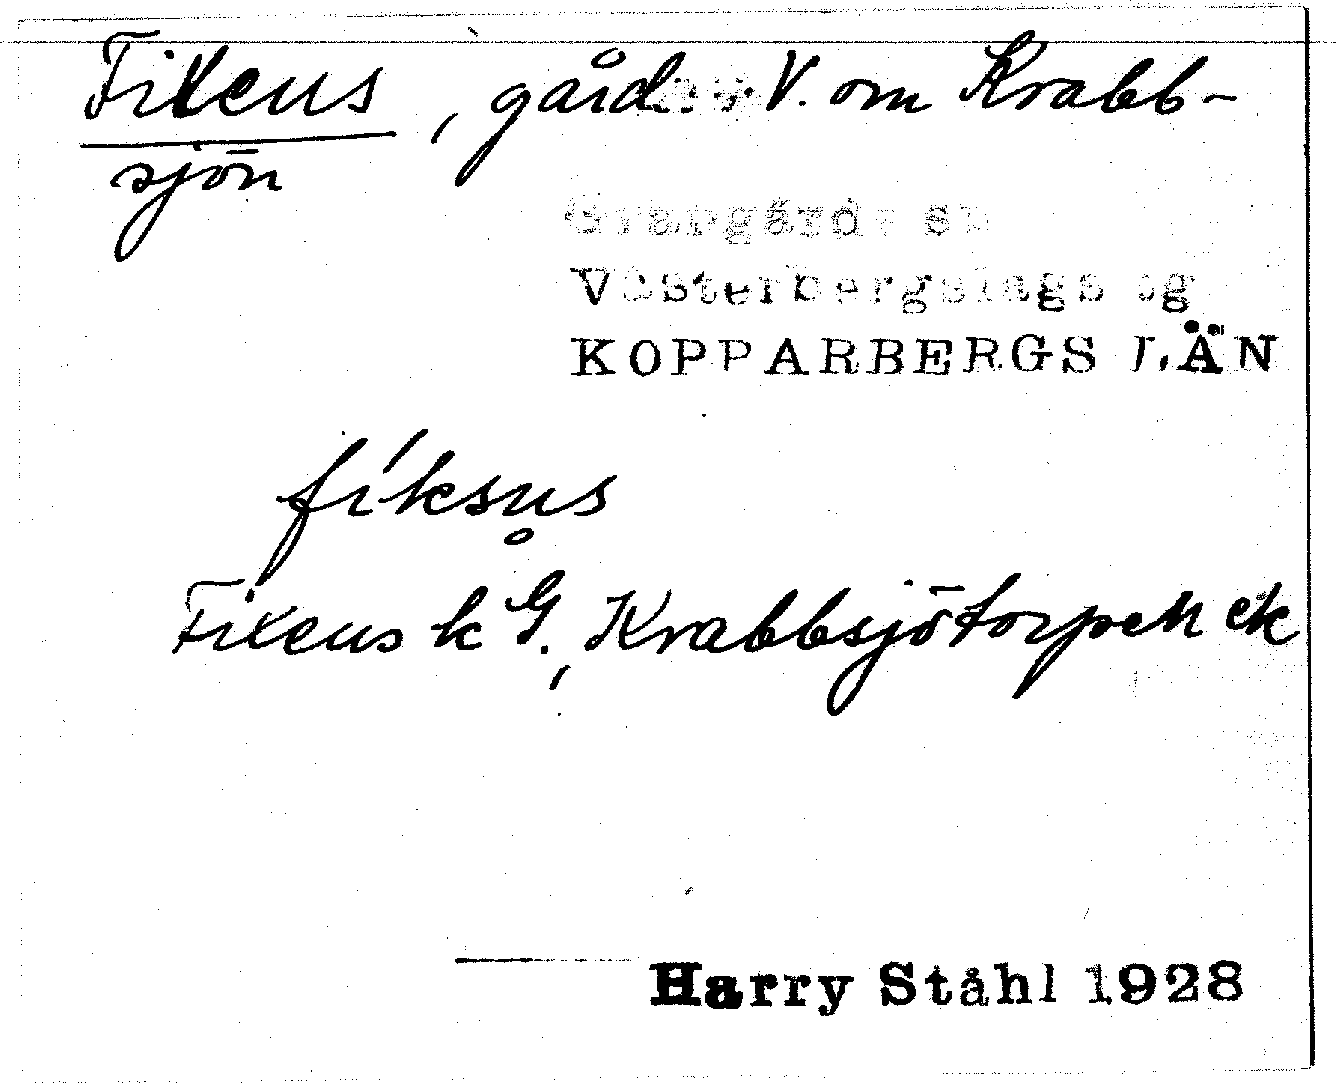 Fixeus, gård V. om Krabb-
sjön
Grangärde sn
Västerbergslags tg
KOPPARBERGS LÄN
fíksu̥s
Fixeus k G., Krabbsjötorpet ek
Harry Ståhl 1928